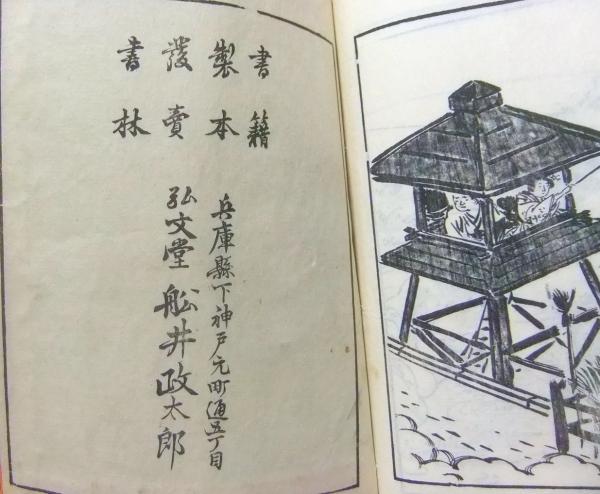 書籍
製本
發賣
書林
兵庫縣下神戸元町通五丁目
弘文堂 舩井政太郎